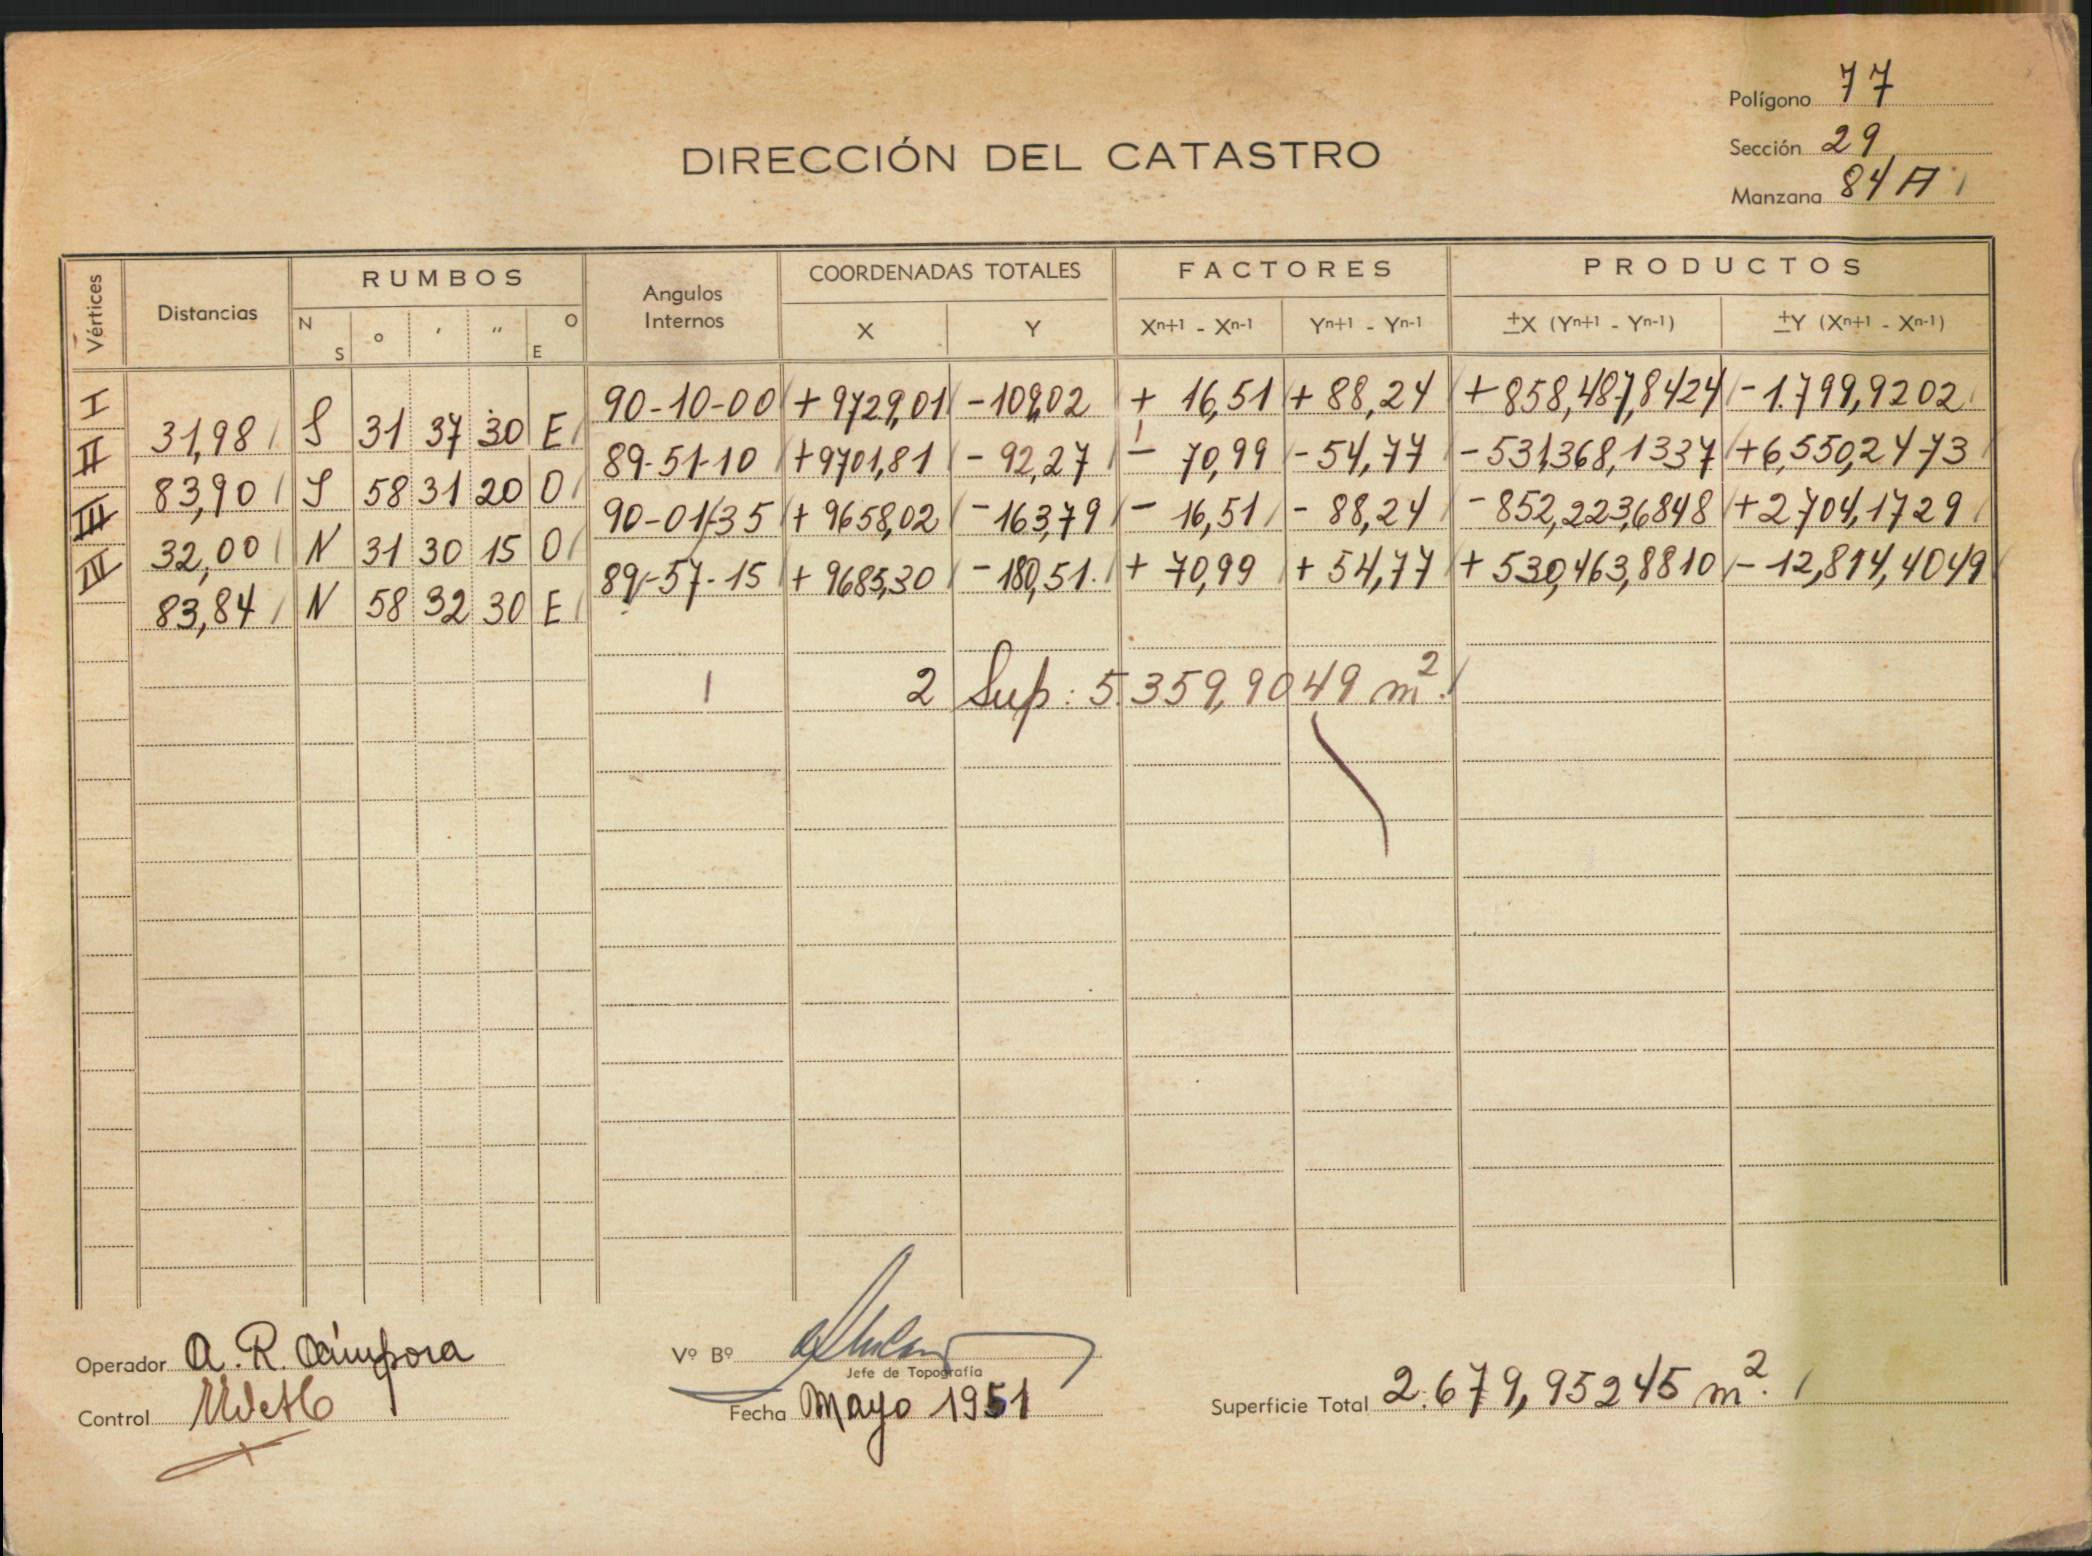 Polígono 77
DIRECCIÓN DEL CATASTRO
Sección 29
Manzana 84A
Vértices Distancias RUMBOS Angulos Internos COORDENADAS TOTALES FACTORES PRODUCTOS
N S o ' " O E X Y Xn+1 - Xn-1 Yn+1 - Yn-1 ±X (Yn+1 - Yn-1) ±Y (Xn+1 - Xn-1)
I 90-10-00 + 9729,01 -109,02 + 16,51 + 88,24 +858,487,8424 -1.799,9202
31,98 S 31 37 30 E
II 89-51-10 +9701,81 - 92,27 - 70,99 -54,77 -531,368,1337 +6,550,2473
83,90 S 58 31 20 O
III 90-01-35 + 9658,02 -163,79 - 16,51 - 88,24 -852,223,6848 +2.704,1729
32,00 N 31 30 15 O
IV 89-57-15 + 9685,30 -180,51. + 70,99 + 54,77 + 530,463,8810 - 12,814,4049
83,84 N 58 32 30 E
2 Sup: 5.359,9049 m².
Operador A. R. Cámpora
Vº Bº
Jefe de Topografía
Control
Fecha Mayo 1951
Superficie Total 2.679,95245 m².